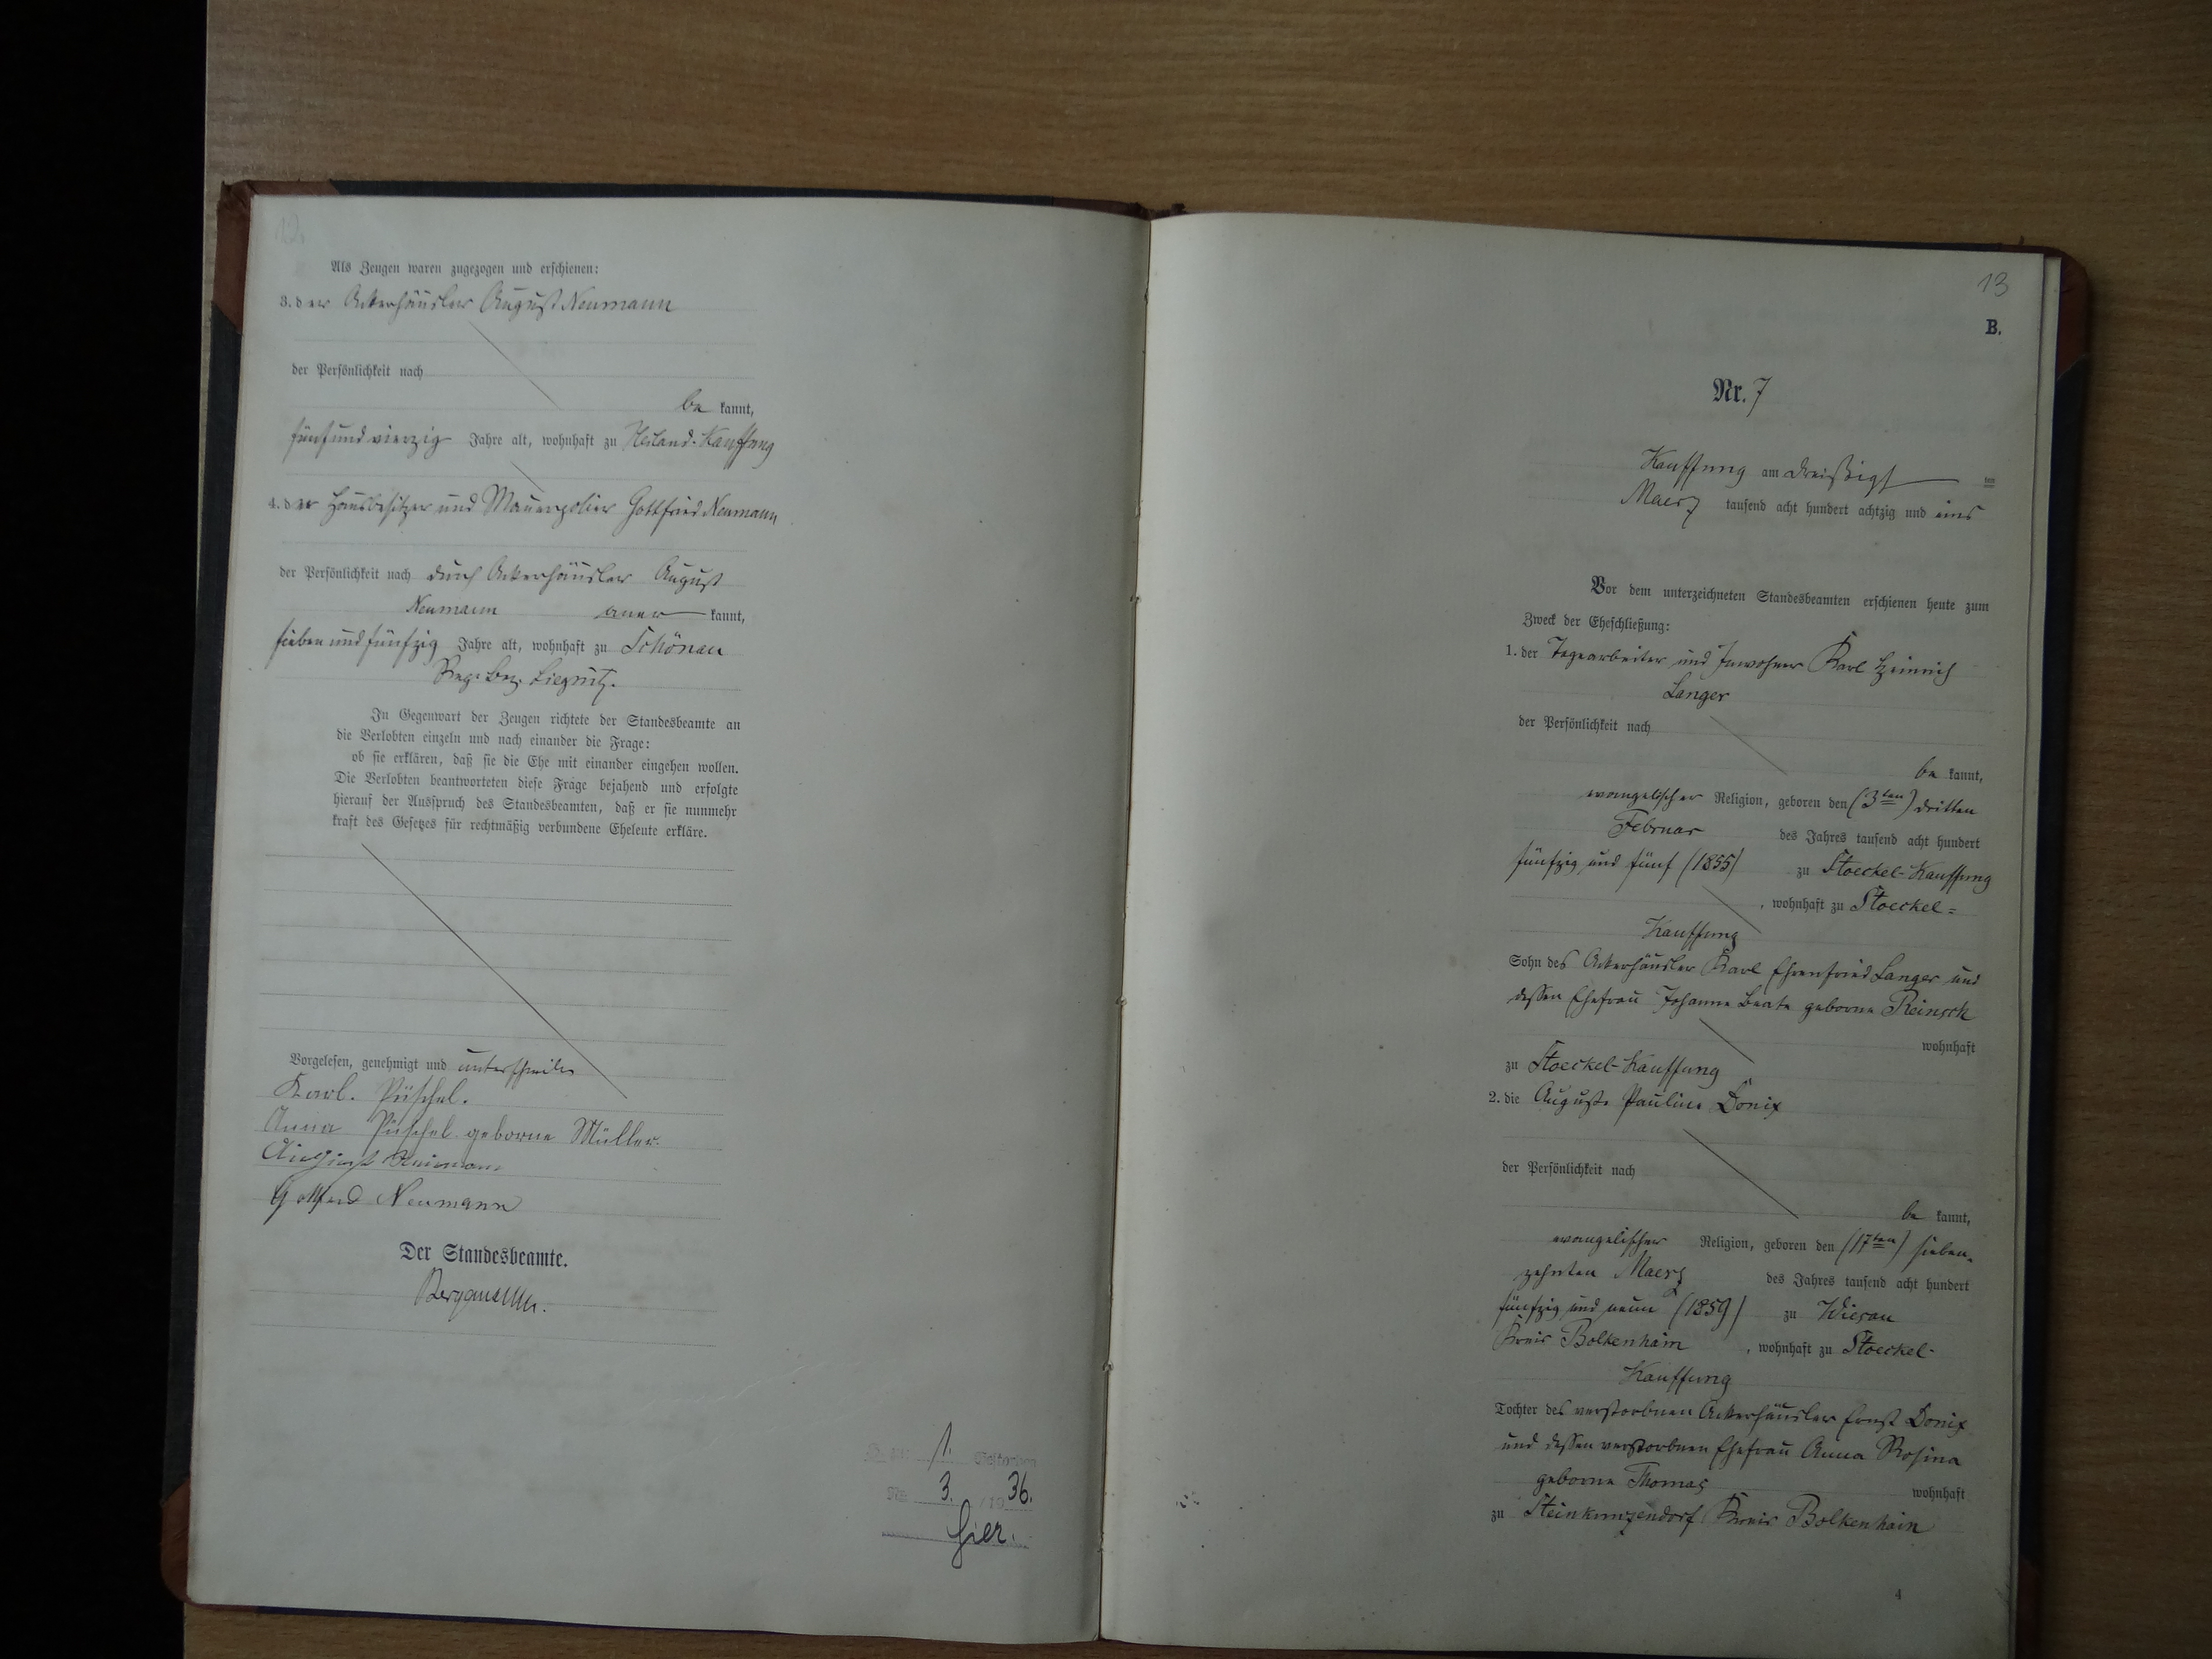 12
Als Zeugen waren zugezogen und erschienen:
3. der Ackerhäusler August Neumann
der Persönlichkeit nach
be kannt,
fünfundvierzig Jahre alt, wohnhaft zu Heiland-Kauffung
4. der Hausbesitzer und Mauerpolier Gottfried Neumann,
der Persönlichkeit nach durch Ackerhäusler August
Neumann aner kannt,
siebenundfünfzig Jahre alt, wohnhaft zu Schönau
Reg. Bez. Liegnitz.
In Gegenwart der Zeugen richtete der Standesbeamte an
die Verlobten einzeln und nach einander die Frage:
ob sie erklären, daß sie die Ehe mit einander eingehen wollen.
Die Verlobten beantworteten diese Frage bejahend und erfolgte
hierauf der Ausspruch des Standesbeamten, daß er sie nunmehr
kraft des Gesetzes für rechtmäßig verbundene Eheleute erkläre.
Vorgelesen, genehmigt und unterschrieben
Karl. Püschel.
Anna Püschel geborne Müller.
August Neumann
Gottfried Neumann
Der Standesbeamte.
1. Gestorben
Nr. 3. /19 36.
hier.
13
B.
Nr. 7
Kauffung am dreißigsten
Maerz tausend acht hundert achtzig und eins
Vor dem unterzeichneten Standesbeamten erschienen heute zum
Zweck der Eheschließung:
1. der Tagearbeiter und Inwohner Karl Heinrich
Langer
der Persönlichkeit nach
be kannt,
evangelischer Religion, geboren den (3ten) dritten
Februar des Jahres tausend acht hundert
fünfzig und fünf (1855) zu Stoeckel-Kauffung
, wohnhaft zu Stoeckel=
Kauffung
Sohn des Ackerhäusler Karl Ehrenfried Langer und
dessen Ehefrau Johanne Beate geborne Reinsch
wohnhaft
zu Stoeckel-Kauffung
2. die Auguste Pauline Donix
der Persönlichkeit nach
be kannt,
evangelischer Religion, geboren den (17ten) sieben-
zehnten Maerz des Jahres tausend acht hundert
fünfzig und neun (1859) zu Wiesau
Kreis Bolkenhain , wohnhaft zu Stoeckel-
Kauffung
Tochter des verstorbnen Ackerhäusler Ernst Donix
und dessen verstorbnen Ehefrau Anna Rosina
geborne Thomas wohnhaft
zu Steinkunzendorf Kreis Bolkenhain
4